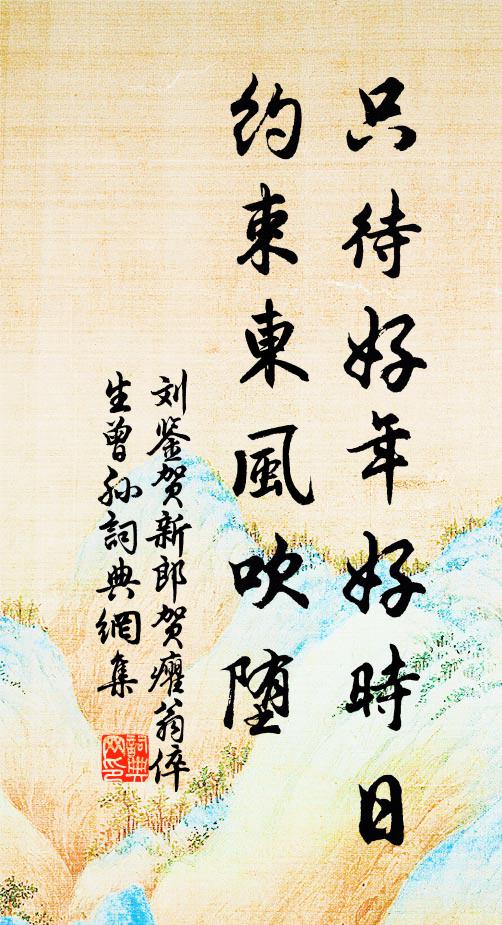 只待好年好時日
約束東風吹堕
刘鉴贺新郎贺癯翁倅
生曾孙詞典網集
詞典